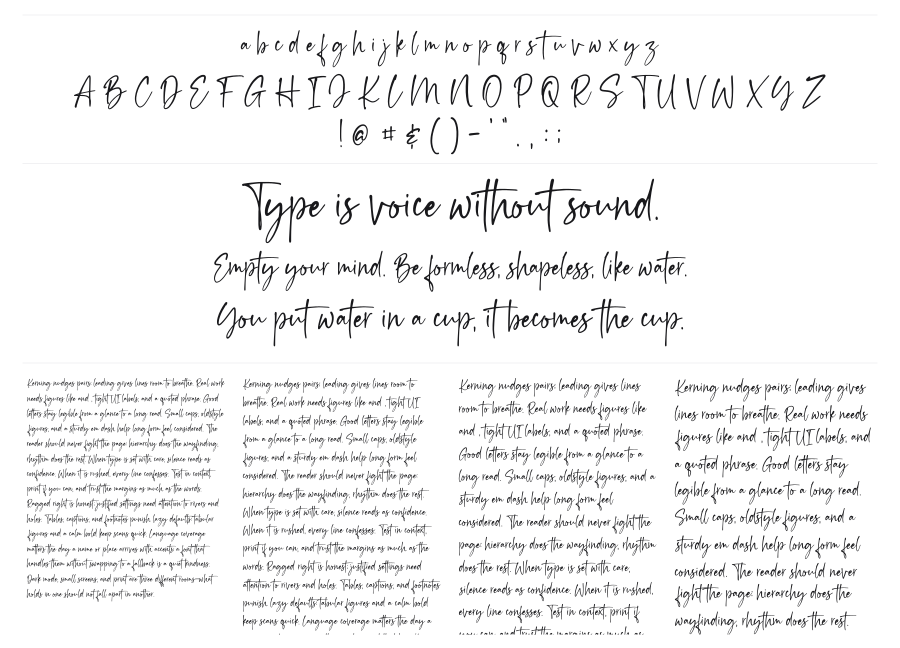 a b c d e f g h i j k l m n o p q r s t u v w x y z
A B C D E F G H I J K L M N O P Q R S T U V W X Y Z
! @ # & ( ) - ' " . , : ;
Type is voice without sound.
Empty your mind. Be formless, shapeless, like water.
You put water in a cup, it becomes the cup.
Kerning nudges pairs; leading gives lines room to breathe. Real work
needs figures like and , tight UI labels, and a quoted phrase. Good
letters stay legible from a glance to a long read. Small caps, oldstyle
figures, and a sturdy em dash help long form feel considered. The
reader should never fight the page: hierarchy does the wayfinding,
rhythm does the rest. When type is set with care, silence reads as
confidence. When it is rushed, every line confesses. Test in context,
print if you can, and trust the margins as much as the words.
Ragged right is honest; justified settings need attention to rivers and
holes. Tables, captions, and footnotes punish lazy defaults; tabular
figures and a calm bold keep scans quick. Language coverage
matters the day a name or place arrives with accents; a font that
handles them without swapping to a fallback is a quiet kindness.
Dark mode, small screens, and print are three different rooms-what
holds in one should not fall apart in another.
Kerning nudges pairs; leading gives lines room to
breathe. Real work needs figures like and , tight UI
labels, and a quoted phrase. Good letters stay legible
from a glance to a long read. Small caps, oldstyle
figures, and a sturdy em dash help long form feel
considered. The reader should never fight the page:
hierarchy does the wayfinding, rhythm does the rest.
When type is set with care, silence reads as confidence.
When it is rushed, every line confesses. Test in context,
print if you can, and trust the margins as much as the
words. Ragged right is honest; justified settings need
attention to rivers and holes. Tables, captions, and footnotes
punish lazy defaults; tabular figures and a calm bold
keep scans quick. Language coverage matters the day a
Kerning nudges pairs; leading gives lines
room to breathe. Real work needs figures like
and , tight UI labels, and a quoted phrase.
Good letters stay legible from a glance to a
long read. Small caps, oldstyle figures, and a
sturdy em dash help long form feel
considered. The reader should never fight the
page: hierarchy does the wayfinding, rhythm
does the rest. When type is set with care,
silence reads as confidence. When it is rushed,
every line confesses. Test in context, print if
you can, and trust the margins as much as
Kerning nudges pairs; leading gives
lines room to breathe. Real work needs
figures like and , tight UI labels, and
a quoted phrase. Good letters stay
legible from a glance to a long read.
Small caps, oldstyle figures, and a
sturdy em dash help long form feel
considered. The reader should never
fight the page: hierarchy does the
wayfinding, rhythm does the rest.